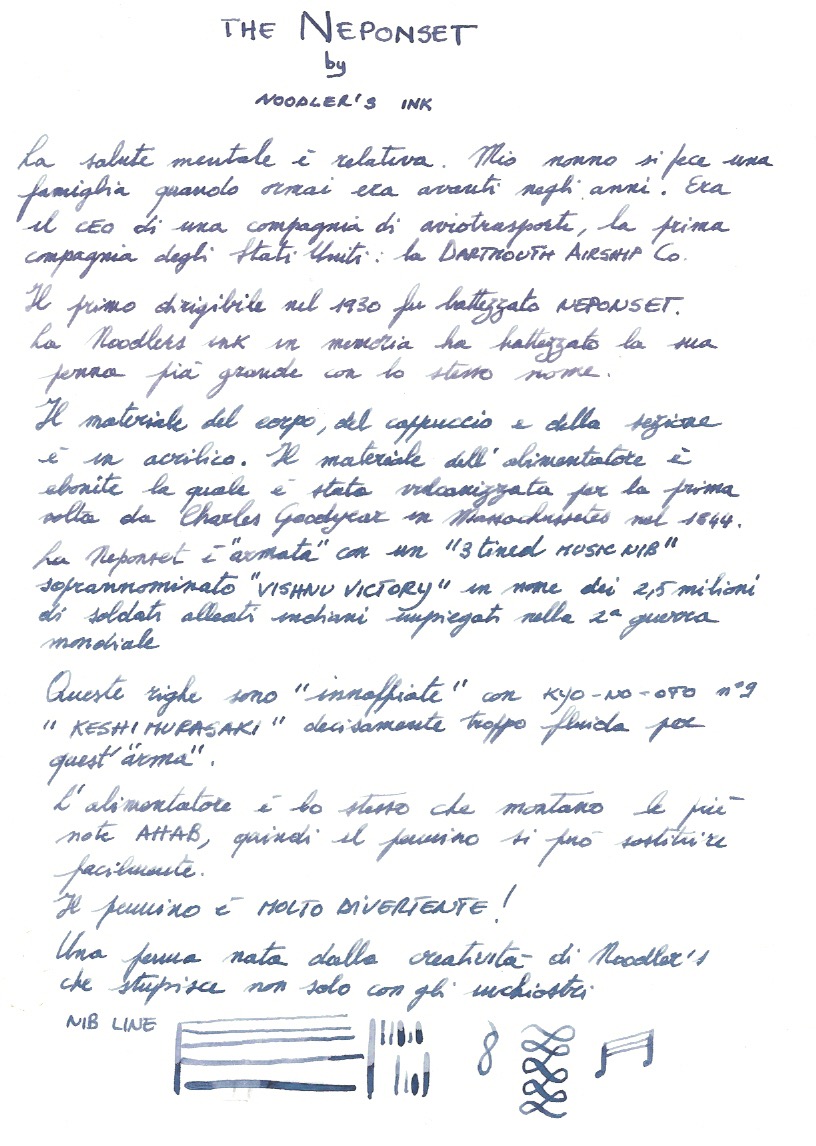 THE NEPONSET
by
NOODLER'S INK
La salute mentale è relativa. Mio nonno si fece una
famiglia quando ormai era avanti negli anni. Era
il CEO di una compagnia di aviotrasporte, la prima
compagnia degli Stati Uniti: la DARTMOUTH AIRSHIP Co.
Il primo dirigibile nel 1930 fu battezzato NEPONSET.
La Noodlers ink in memoria ha battezzato la sua
penna più grande con lo stesso nome.
Il materiale del corpo, del cappuccio e della sezione
è in acrilico. Il materiale dell'alimentatore è
ebonite la quale è stata vulcanizzata per la prima
volta da Charles Goodyear in Massachussetes nel 1844.
La Neponset è "armata" con un "3 tined MUSIC NIB"
soprannominato "VISHNU VICTORY" in nome dei 2,5 milioni
di soldati alleati indiani impiegati nella 2ª guerra
mondiale
Queste righe sono "innaffiate" con KYO-NO-OTO n°9
"KESHIMURASAKI" decisamente troppo fluida per
quest'"arma".
L'alimentatore è lo stesso che montano le più
note AHAB, quindi il pennino si può sostituire
facilmente.
Il pennino è MOLTO DIVERTENTE!
Una penna nata dalla creatività di Noodler's
che stupisce non solo con gli inchiostri
NIB LINE